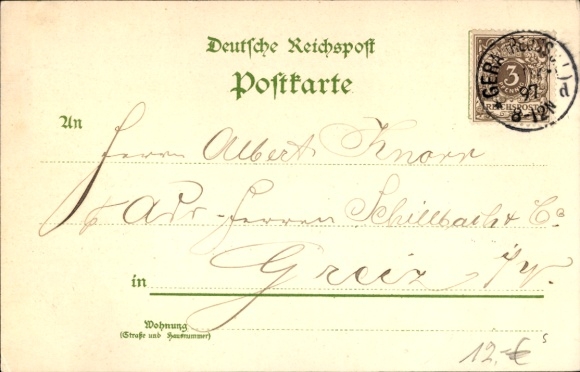 Deutsche Reichspost
Postkarte
GERA (REUSS)
97
8-12N
d
3
PFENNIG
REICHSPOST
An
Herrn Albert Knorr
Adr. Herren Schillbach & Co
in Greiz i/V.
Wohnung
(Straße und Hausnummer)
12.-€